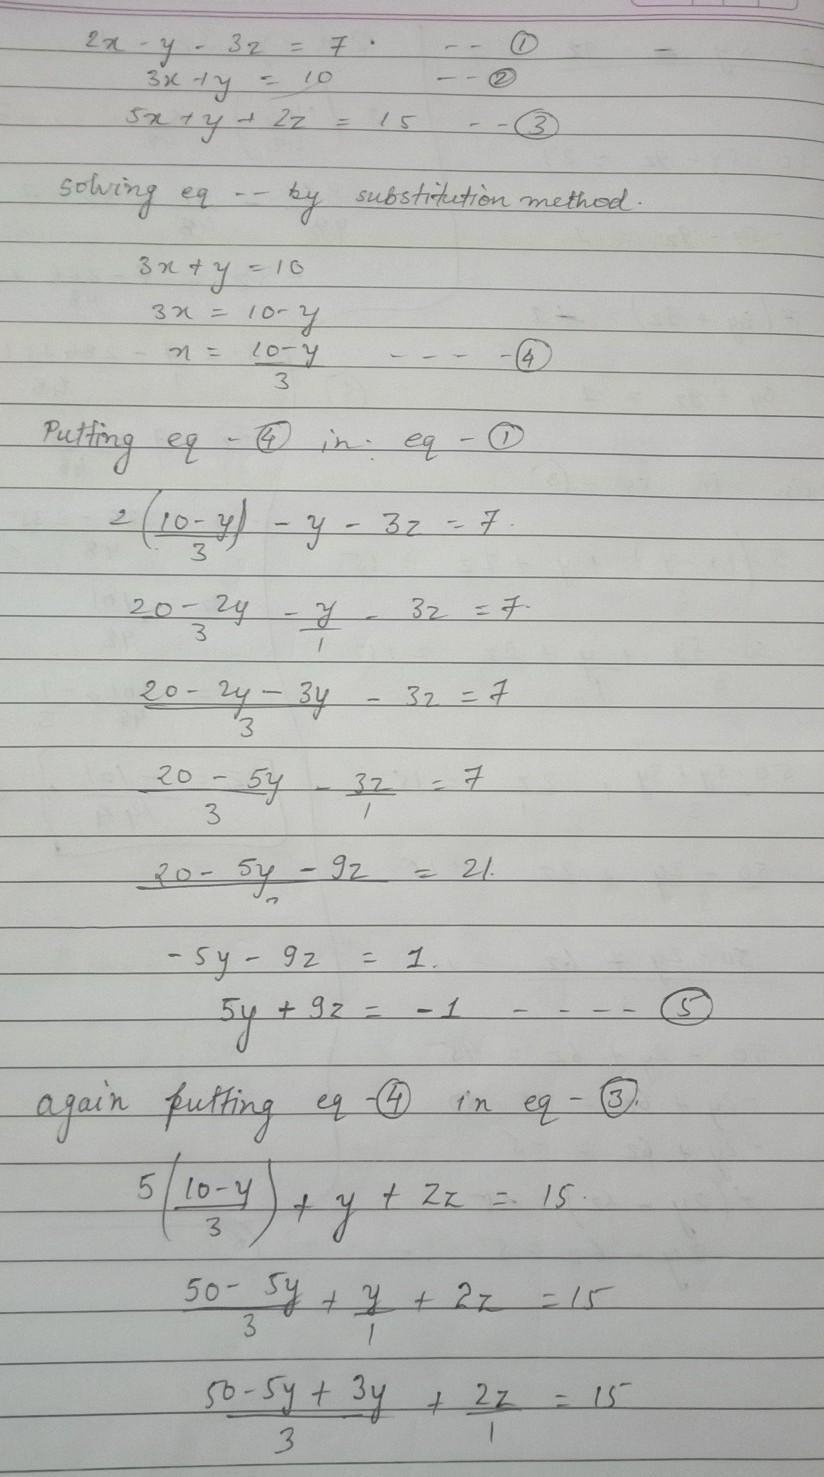 2x - y - 3z = 7 . -- ①
3x + y = 10 -- ②
5x + y + 2z = 15 -- ③
solving eq -- by substitution method.
3x + y = 10
3x = 10 - y
x = 10 - y / 3 ---- ④
Putting eq - ④ in eq - ①
2(10 - y / 3) - y - 3z = 7.
20 - 2y / 3 - y / 1 - 3z = 7.
20 - 2y - 3y / 3 - 3z = 7
20 - 5y / 3 - 3z / 1 = 7
20 - 5y - 9z = 21.
-5y - 9z = 1.
5y + 9z = -1 ---- ⑤
again putting eq - ④ in eq - ③.
5(10 - y / 3) + y + 2z = 15.
50 - 5y / 3 + y / 1 + 2z = 15
50 - 5y + 3y / 3 + 2z / 1 = 15